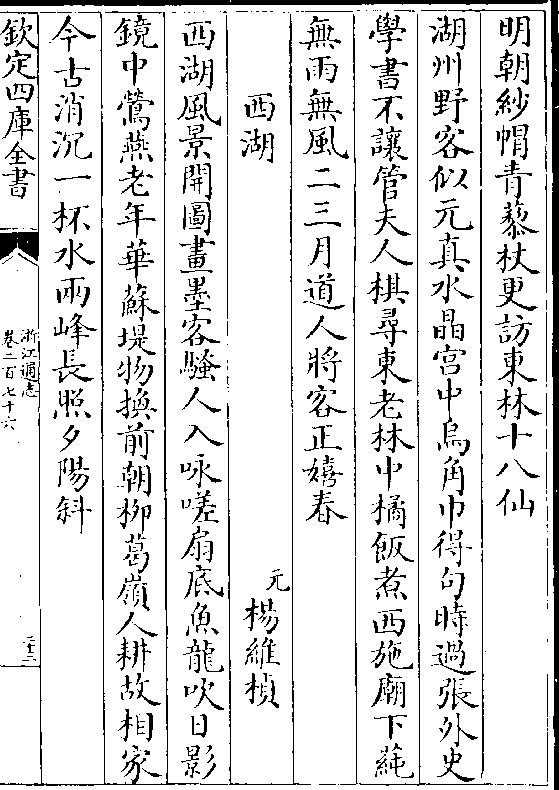 明朝紗帽青藜杖更訪東林十八仙
湖州野客似元真水晶宮中烏角巾得句時過張外史
學書不讓管夫人棋尋東老林中橘飯煮西施廟下蒓
無雨無風二三月道人將客正嬉春
西湖　元楊維楨
西湖風景開圖畫墨客騷人入咏嗟扇底魚龍吹日影
鏡中鶯燕老年華蘇堤物換前朝柳葛嶺人耕故相家
今古消沉一杯水兩峰長照夕陽斜
欽定四庫全書
浙江通志
卷二百七十六